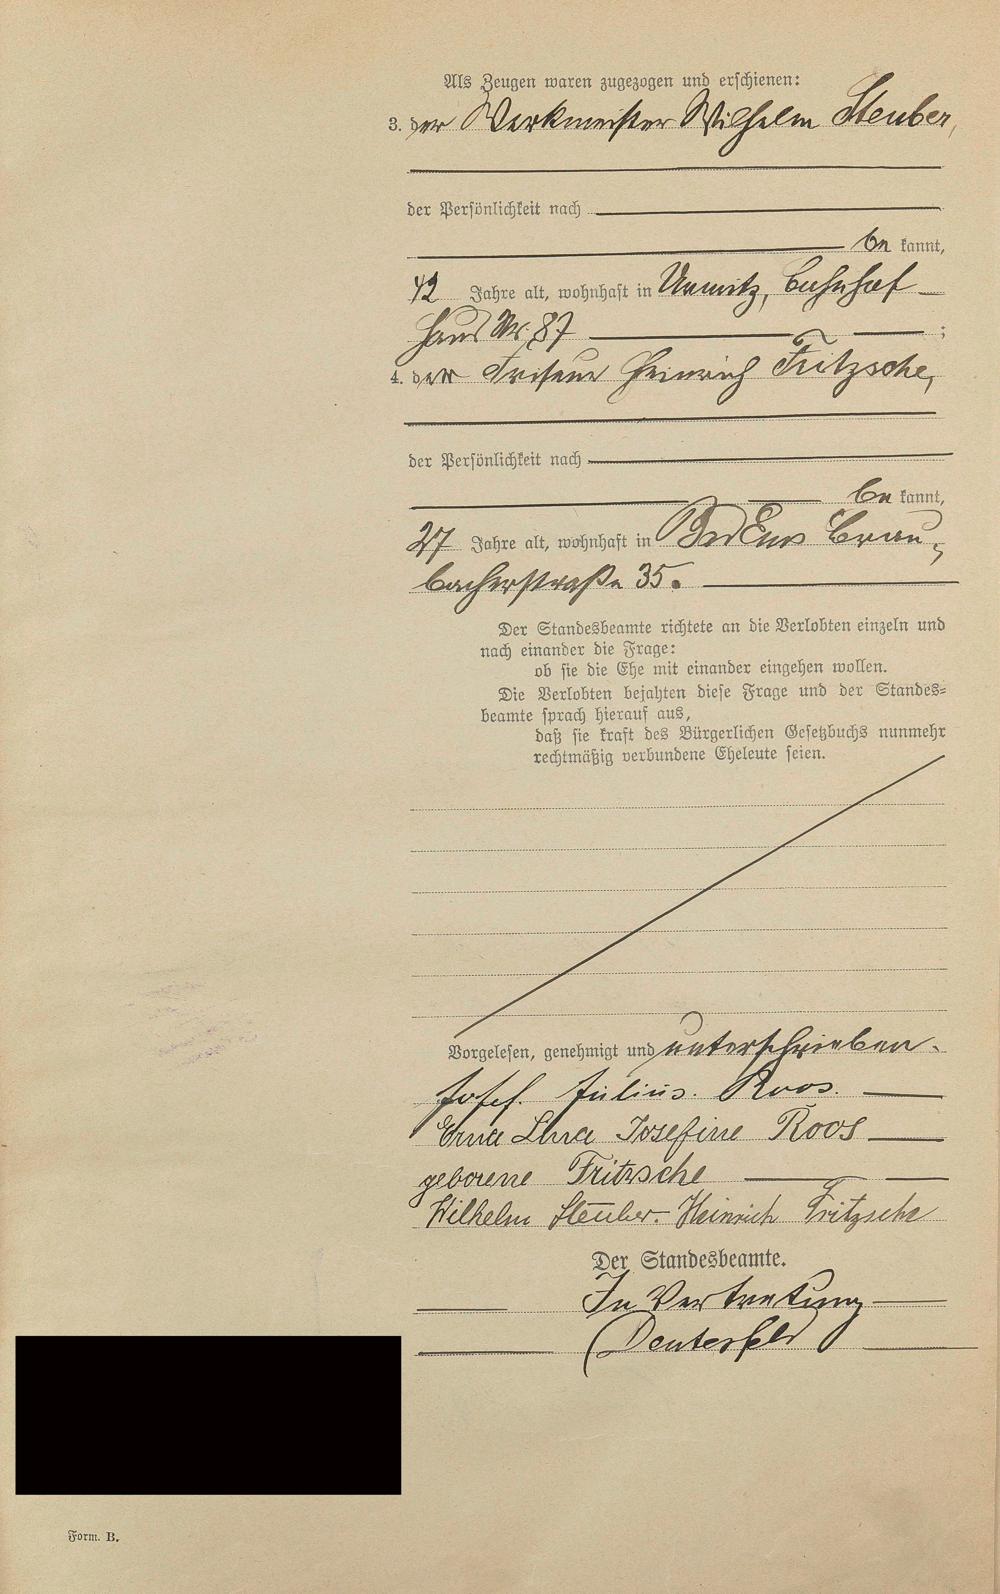 Als Zeugen waren zugezogen und erschienen:
3. der Werkmeister Wilhelm Steuber,
der Persönlichkeit nach
be kannt,
42 Jahre alt, wohnhaft in Urmitz, Bahnhof
Haus Nr. 87 ;
4. der Friseur Heinrich Fritzsche,
der Persönlichkeit nach
be kannt,
27 Jahre alt, wohnhaft in Bad Ems Brau-
bacherstraße 35.
Der Standesbeamte richtete an die Verlobten einzeln und
nach einander die Frage:
ob sie die Ehe mit einander eingehen wollen.
Die Verlobten bejahten diese Frage und der Standes-
beamte sprach hierauf aus,
daß sie kraft des Bürgerlichen Gesetzbuchs nunmehr
rechtmäßig verbundene Eheleute seien.
Vorgelesen, genehmigt und unterschrieben.
Josef. Julius. Roos.
Erna Josefine Roos
geborene Fritzsche
Wilhelm Steuber. Heinrich Fritzsche
Der Standesbeamte.
In Vertretung
Form. B.